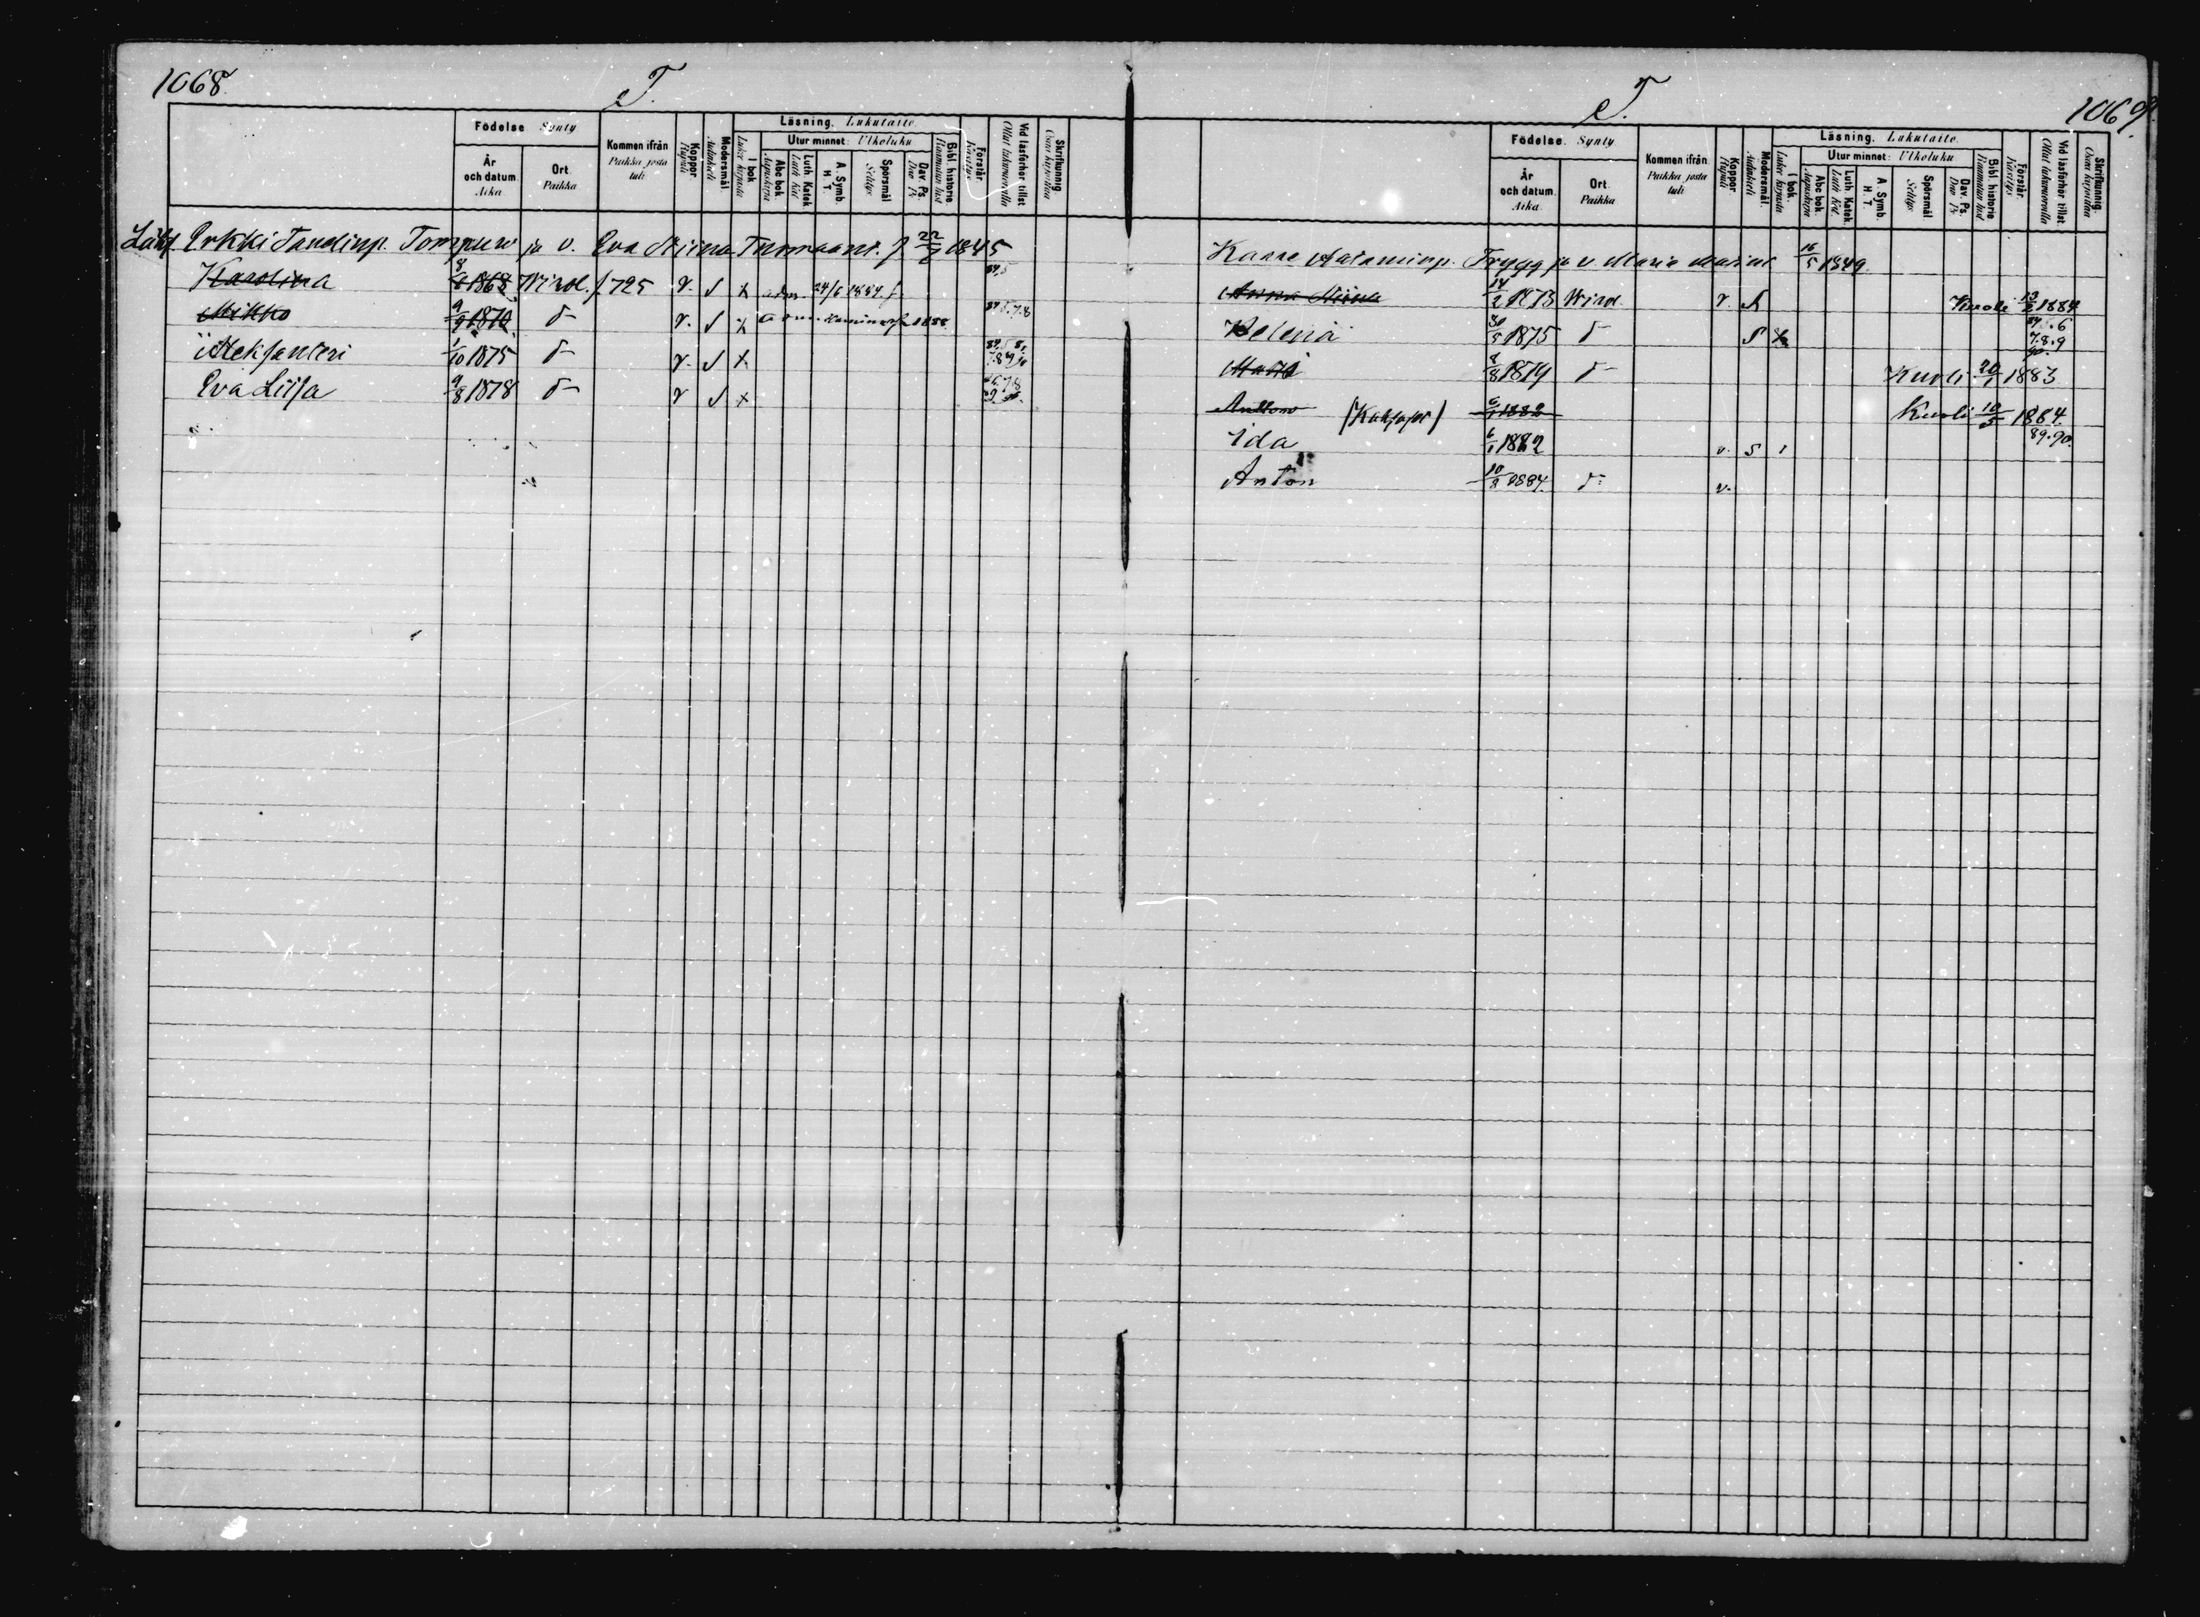 1068.
T.
Födelse Synty
År och datum Aika
Ort. Paikka
Kommen ifrån Paikka josta tuli
Koppor Rupuli
Modersmål Äidinkieli
Läsning. Lukutaito.
I bok Lukee kirjasta
Utur minnet: Ulkoluku
Abc bok Aapiskirja
Luth Katek. Luth Kat
A. Symb. H. T.
Spörsmål Selitys
Dav. Ps. Dav Ps
Bibl. historie Raamatun hist
Förstår. Käsitys
Vid läsförhör tillst. Ollut lukuvuorolla
Skrifkunnig Osaa kirjoittaa
Erkki Tompuri ja v. Eva Stiina 22/2 1845
Karolina 8/6 1868 Wirol. 725 r. s x adm. 24/6 1884
Mikko 9/9 1870 d- r. s x 1888
Aleksanteri 1/10 1875 d- r. s x
Eva Liisa 9/8 1878 d- r s x
T.
1069.
Födelse. Synty
År och datum. Aika.
Ort. Paikka
Kommen ifrån Paikka josta tuli
Koppor. Rupuli
Modersmål. Äidinkieli
Läsning. Lukutaito.
I bok. Lukee kirjasta
Utur minnet: Ulkoluku
Abc bok. Aapiskirja
Luth Katek. Luth Kat.
A. Symb. H. T.
Spörsmål Selitys
Dav. Ps. Dav Ps
Bibl. historie Raamatun hist
Förstår. Käsitys
Vid läsförhör tillst. Ollut lukuvuorolla
Skrifkunnig. Osaa kirjoittaa
Kaare Aataminp. Trygg ja v. Maria 16/5 1849.
Anna Stiina 14/2 1873 Wirol. r. s Kuoli 13/2 1884
Helena 30/5 1875 d- s x
Maria 8/8 1879 d- Kuoli 20/1 1883
Anton 6/1 1882 Kuoli 10/5 1884
Ida 6/1 1882 v. s 89.90.
Anton 10/8 1884. d- v.